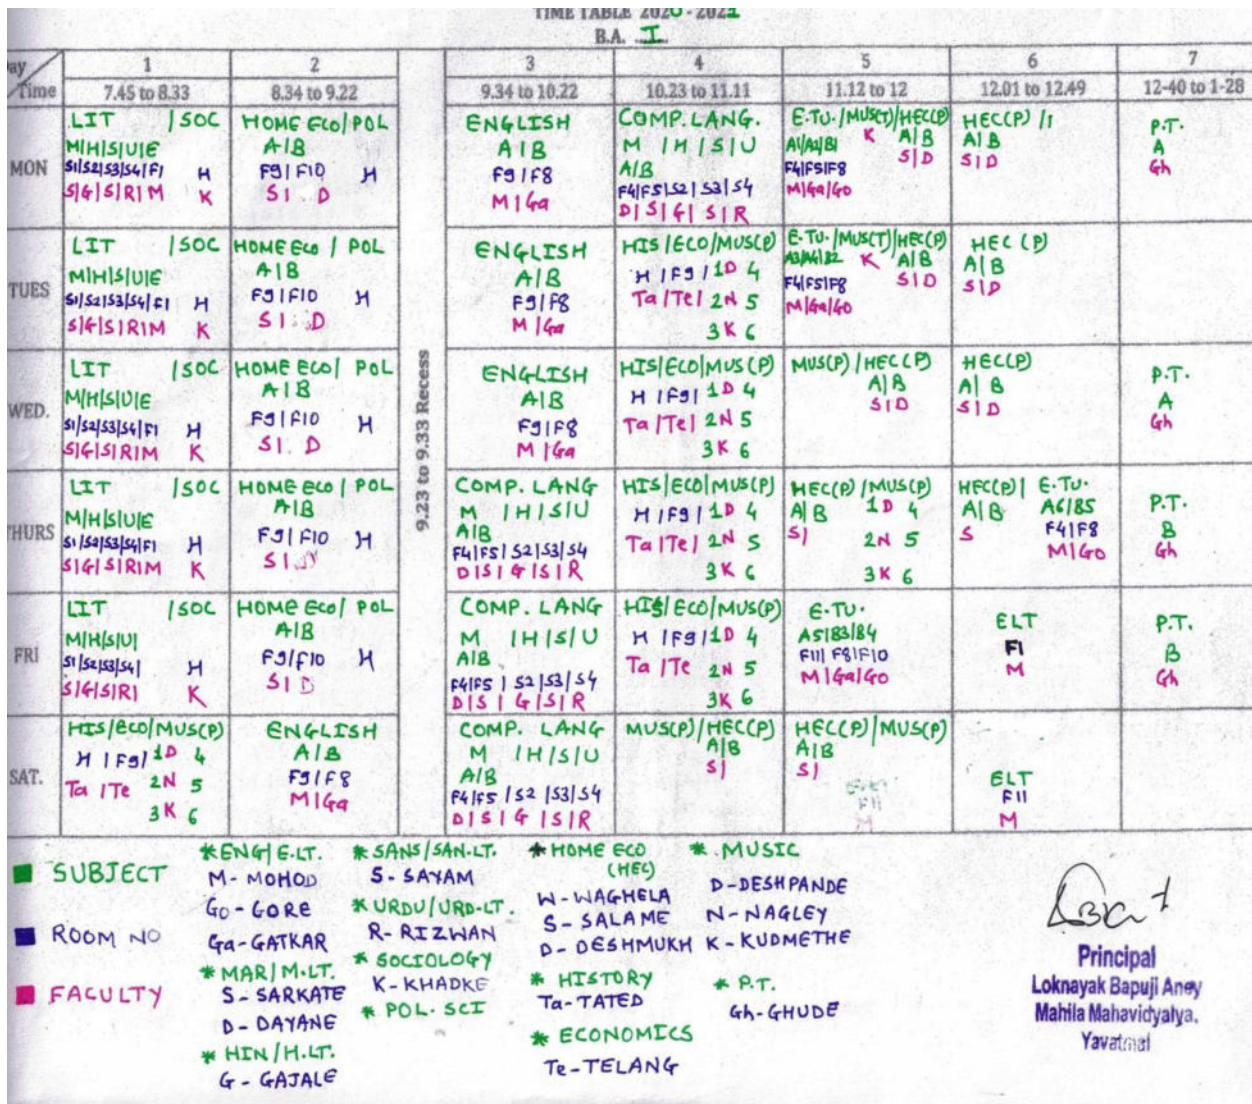 TIME TABLE 2020-2021
B.A. I
ay Time 1 2 3 4 5 6 7
7.45 to 8.33 8.34 to 9.22 9.34 to 10.22 10.23 to 11.11 11.12 to 12 12.01 to 12.49 12-40 to 1-28
9.23 to 9.33 Recess
MON
LIT /SOC
M/H/S/U/E
S1/S2/S3/S4/F1 H
S/G/S/R/M K
HOME ECO/POL
A/B
F9/F10 H
S/ D
ENGLISH
A/B
F9/F8
M/Ga
COMP.LANG.
M /H/S/U
A/B
F4/F5/S2/S3/S4
D/S/G/ S/R
E.TU./MUS(T)/HEC(P)
A1/A2/B1 K A/B
F4/F5/F8 S/D
M/Ga/Go
HEC(P) /1
A/B
S/D
P.T.
A
Gh
TUES
LIT /SOC
M/H/S/U/E
S1/S2/S3/S4/F1 H
S/G/S/R/M K
HOME ECO / POL
A/B
F9/F10 H
S/ D
ENGLISH
A/B
F9/F8
M/Ga
HIS/ECO/MUS(P)
H /F9/ 1D 4
Ta/Te/ 2N 5
3K 6
E.TU./MUS(T)/HEC(P)
A3/A4/B2 K A/B
F4/F5/F8 S/D
M/Ga/Go
HEC (P)
A/B
S/D
WED.
LIT /SOC
M/H/S/U/E
S1/S2/S3/S4/F1 H
S/G/S/R/M K
HOME ECO/ POL
A/B
F9/F10 H
S/ D
ENGLISH
A/B
F9/F8
M/Ga
HIS/ECO/MUS(P)
H /F9/ 1D 4
Ta/Te/ 2N 5
3K 6
MUS(P)/HEC(P)
A/B
S/D
HEC(P)
A/B
S/D
P.T.
A
Gh
HURS
LIT /SOC
M/H/S/U/E
S1/S2/S3/S4/F1 H
S/G/S/R/M K
HOME ECO/ POL
A/B
F9/F10 H
S/D
COMP. LANG
M /H/S/U
A/B
F4/F5/S2/S3/S4
D/S/G/S/R
HIS/ECO/MUS(P)
H /F9/ 1D 4
Ta/Te/ 2N 5
3K 6
HEC(P)/MUS(P)
A/B 1D 4
S/ 2N 5
3K 6
HEC(P)/ E.TU.
A/B A6/B5
S F4/F8
M/Go
P.T.
B
Gh
FRI
LIT /SOC
M/H/S/U/
S1/S2/S3/S4/ H
S/G/S/R/ K
HOME ECO/ POL
A/B
F9/F10 H
S/D
COMP. LANG
M /H/S/U
A/B
F4/F5 / S2/S3/S4
D/S / G/S/R
HIS/ECO/MUS(P)
H /F9/1D 4
Ta/Te 2N 5
3K 6
E.TU.
A5/B3/B4
F11/F8/F10
M/Ga/Go
ELT
F1
M
P.T.
B
Gh
SAT.
HIS/ECO/MUS(P)
H /F9/ 1D 4
Ta /Te 2N 5
3K 6
ENGLISH
A/B
F9/F8
M/Ga
COMP. LANG
M /H/S/U
A/B
F4/F5 /S2 /S3/S4
D/S/G /S/R
MUS(P)/HEC(P)
A/B
S/
HEC(P)/MUS(P)
A/B
S/
F11
M
ELT
F11
M
SUBJECT
ROOM NO
FACULTY
*ENG/E.LT.
M- MOHOD
Go-GORE
Ga-GATKAR
*MAR/M.LT.
S- SARKATE
D- DAYANE
*HIN/H.LT.
G- GAJALE
*SANS/SAN.LT.
S- SAYAM
*URDU/URD-LT.
R-RIZWAN
*SOCIOLOGY
K-KHADKE
*POL. SCI
*HOME ECO
(HEC)
W-WAGHELA
S-SALAME
D-DESHMUKH
*HISTORY
Ta-TATED
*ECONOMICS
Te-TELANG
*MUSIC
D-DESHPANDE
N-NAGLEY
K-KUDMETHE
*P.T.
Gh-GHUDE
Principal
Loknayak Bapuji Aney
Mahila Mahavidyalya,
Yavatmal